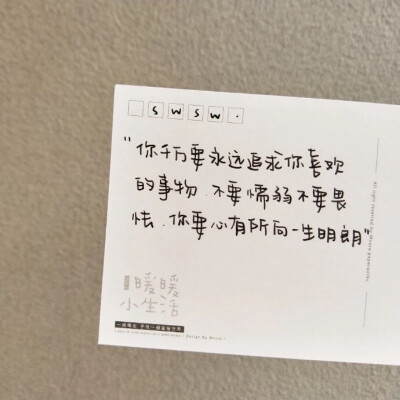 _ S W S W .
"你千万要永远追求你喜欢
的事物.不要懦弱不要畏
怯.你要心有所向一生明朗"
暖暖
小生活